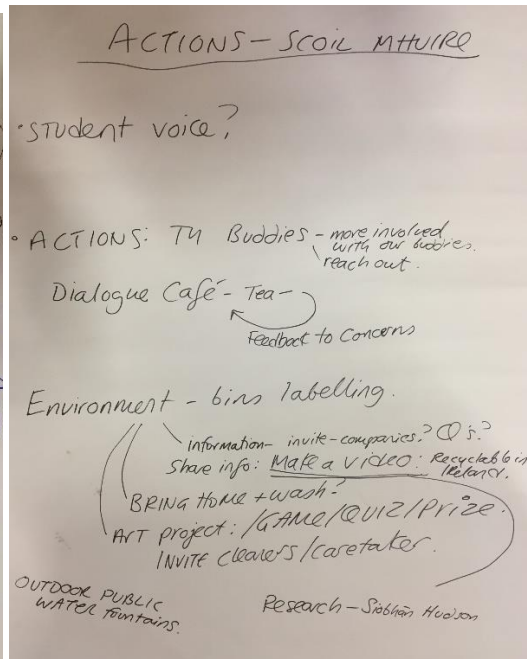 ACTIONS – SCOIL MHUIRE
• STUDENT VOICE?
• ACTIONS: TY Buddies – more involved
with our buddies.
reach out.
Dialogue Café – Tea –
Feedback to Concerns
Environment – bins labelling.
information – invite – companies? Q's?
Share info: Make a video: Recyclable in
Ireland.
BRING HOME + WASH?
ART project: /GAME/QUIZ/Prize.
INVITE cleaners/caretaker.
OUTDOOR PUBLIC
WATER fountains.
Research – Siobhán Hudson